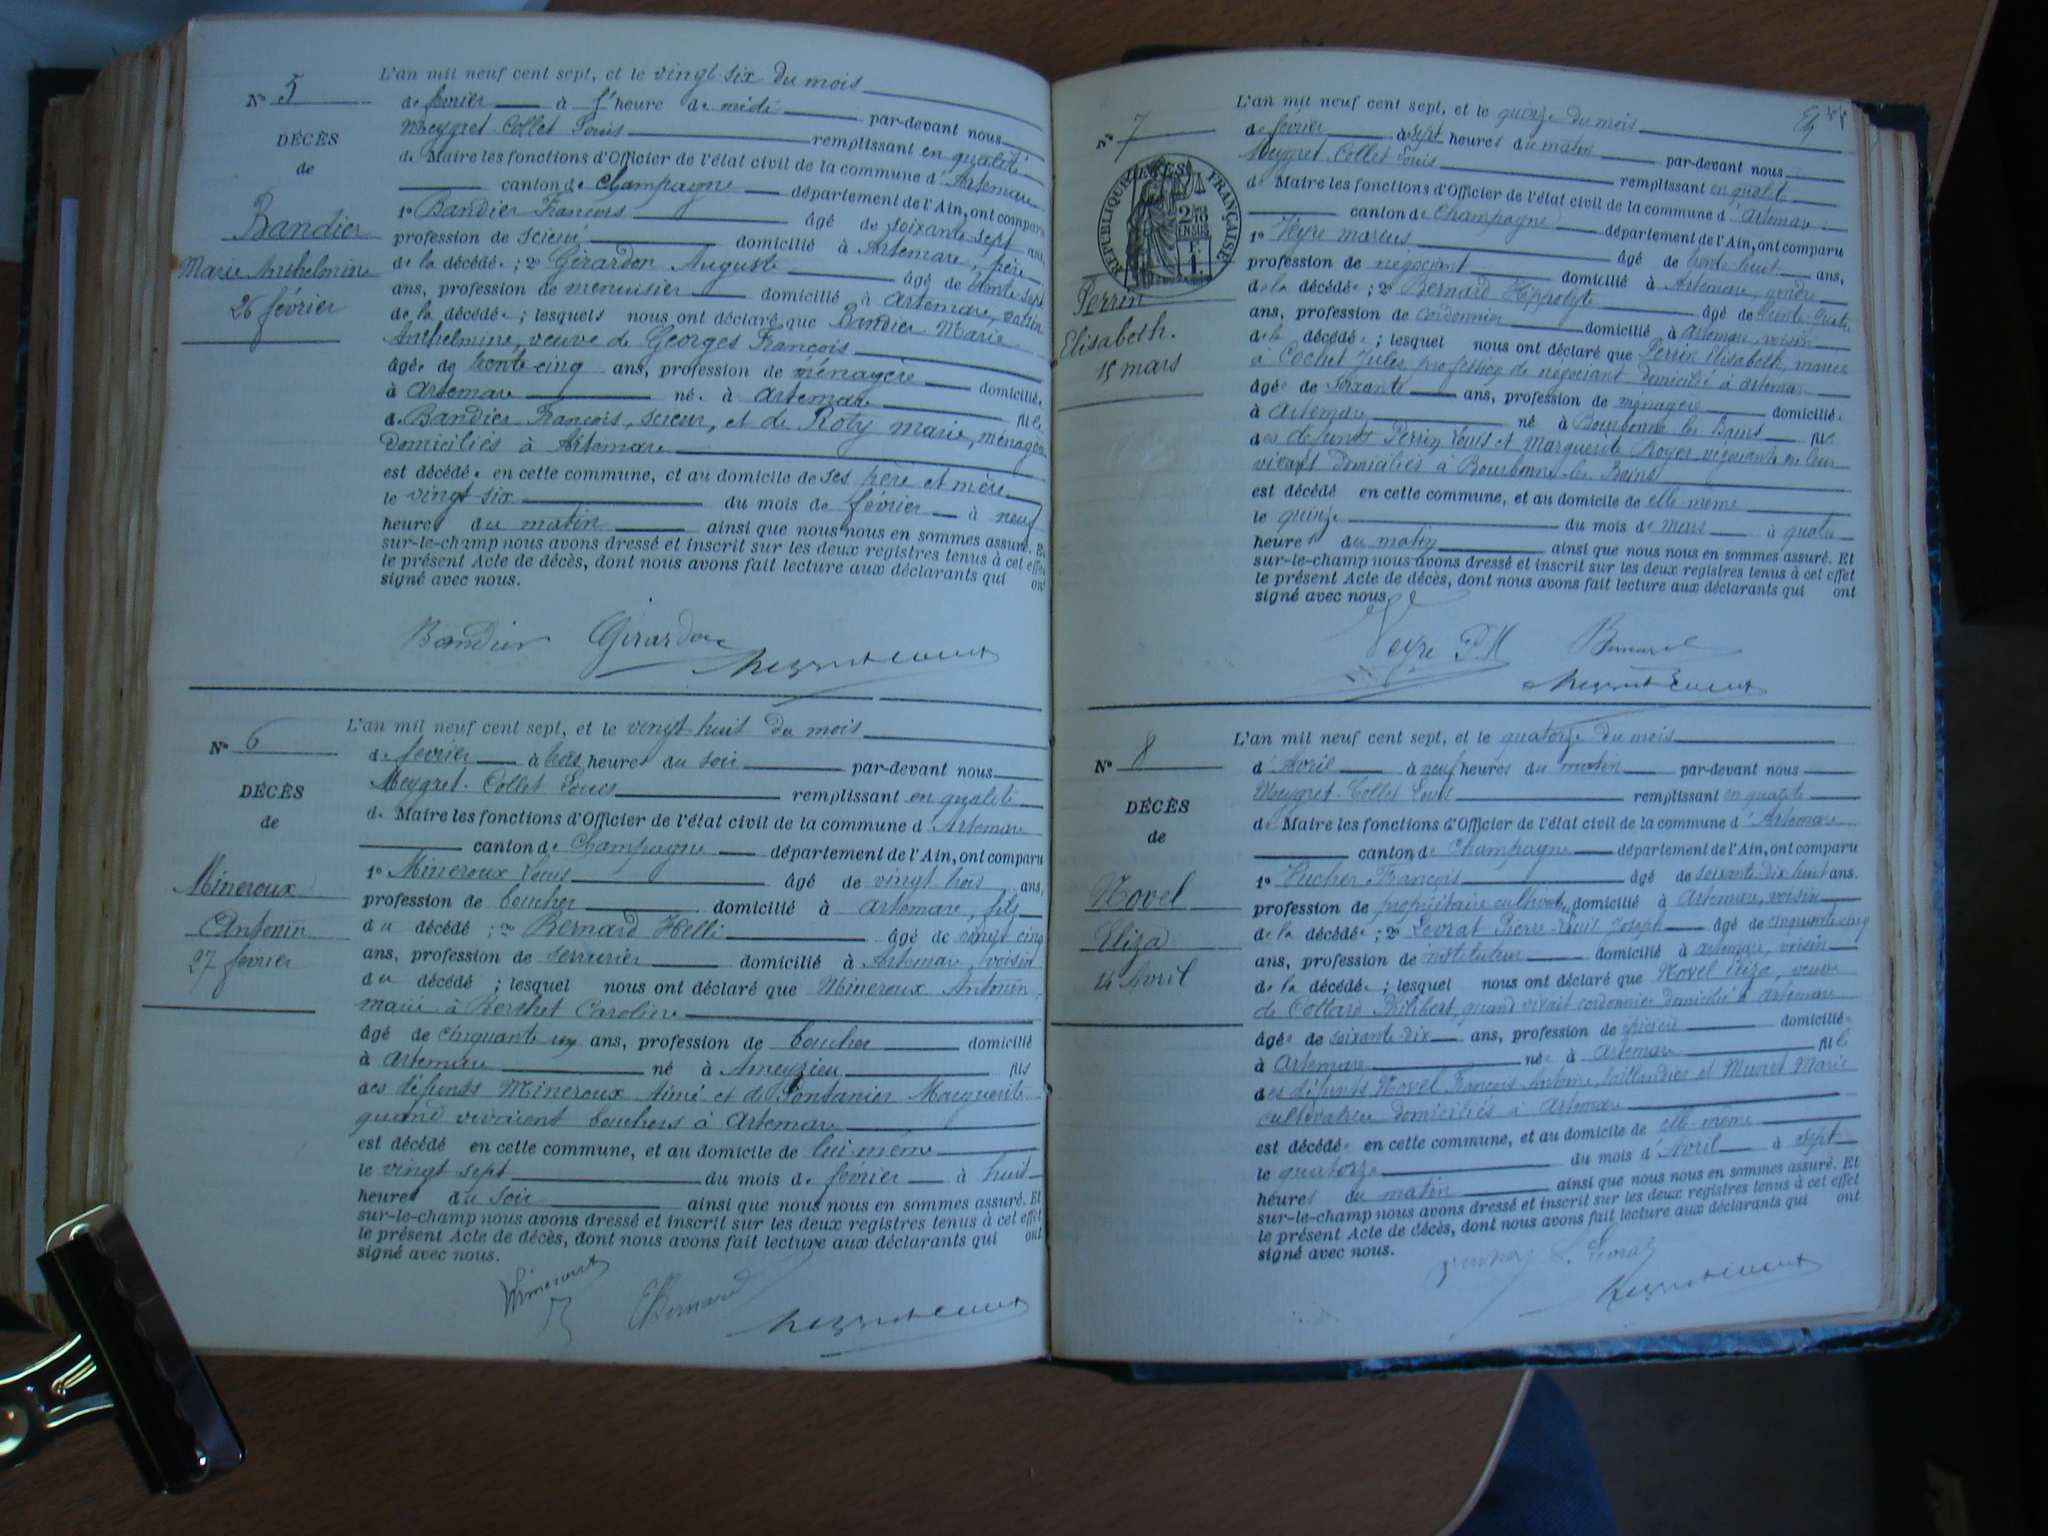 L'an mil neuf cent sept, et le vingt six du mois
N° 5
de février à l'heure de midi par-devant nous
Meygret-Collet Louis remplissant en qualité
DÉCÈS
de Maire les fonctions d'Officier de l'état civil de la commune d'Artemare
de
canton de Champagne département de l'Ain, ont comparu
1° Bandier François âgé de soixante-sept ans,
Bandier
profession de scieur domicilié à Artemare, père
Marie Anthelmine
de la décédée ; 2° Gérardon Auguste âgé de trente-sept
26 février
ans, profession de menuisier domicilié à Artemare, voisin
de la décédée ; lesquels nous ont déclaré que Bandier Marie
Anthelmine, veuve de Georges François
âgée de trente-cinq ans, profession de ménagère domiciliée
à Artemare née à Artemare fille
de Bandier François, scieur, et de Roty Marie, ménagère
domiciliés à Artemare
est décédée en cette commune, et au domicile de ses père et mère
le vingt-six du mois de février à neuf
heures du matin ainsi que nous nous en sommes assuré. Et
sur-le-champ nous avons dressé et inscrit sur les deux registres tenus à cet effet
le présent Acte de décès, dont nous avons fait lecture aux déclarants qui ont
signé avec nous.
Bandier Girardon
L'an mil neuf cent sept, et le vingt huit du mois
N° 6
de février à trois heures du soir par-devant nous
Meygret-Collet Louis remplissant en qualité
DÉCÈS
de Maire les fonctions d'Officier de l'état civil de la commune d'Artemare
de
canton de Champagne département de l'Ain, ont comparu
1° Mineroux Louis âgé de vingt trois ans,
Mineroux
profession de boucher domicilié à Artemare, fils
Antonin
du décédé ; 2° Bernard Helli âgé de vingt cinq
27 février
ans, profession de serrurier domicilié à Artemare, voisin
du décédé ; lesquel nous ont déclaré que Mineroux Antonin,
marié à Berthet Caroline
âgé de cinquante ans, profession de boucher domicilié
à Artemare né à Ameyzieu fils
des défunts Mineroux Aimé et de Fontanier Marguerite
quand vivaient bouchers à Artemare
est décédé en cette commune, et au domicile de lui-même
le vingt sept du mois de février à huit
heures du soir ainsi que nous nous en sommes assuré. Et
sur-le-champ nous avons dressé et inscrit sur les deux registres tenus à cet effet
le présent Acte de décès, dont nous avons fait lecture aux déclarants qui ont
signé avec nous.
Mineroux Bernard
L'an mil neuf cent sept, et le quinze du mois
N° 7
de février à sept heures du matin par-devant nous
Meygret-Collet Louis remplissant en qualité
RÉPUBLIQUE FRANÇAISE
de Maire les fonctions d'Officier de l'état civil de la commune d'Artemare
canton de Champagne département de l'Ain, ont comparu
1° Veyre Marius âgé de trente-huit ans,
profession de négociant domicilié à Artemare, gendre
Perrin
de la décédée ; 2° Bernard Hippolyte âgé de trente-quatre
Elisabeth.
ans, profession de cordonnier domicilié à Artemare, voisin
15 mars
de la décédée ; lesquel nous ont déclaré que Perrin Elisabeth, mariée
à Cochet Jules, profession de négociant domicilié à Artemare
âgée de soixante ans, profession de ménagère domiciliée
à Artemare né à Bourbonne les Bains fille
des défunts Perrin Louis et Marguerite Royer négociants en leur
vivant domiciliés à Bourbonne-les-Bains
est décédé en cette commune, et au domicile de elle même
le quinze du mois de mars à quatre
heures du matin ainsi que nous nous en sommes assuré. Et
sur-le-champ nous avons dressé et inscrit sur les deux registres tenus à cet effet
le présent Acte de décès, dont nous avons fait lecture aux déclarants qui ont
signé avec nous.
Veyre Bernard
L'an mil neuf cent sept, et le quatorze du mois
N° 8
d'Avril à neuf heures du matin par-devant nous
Meygret-Collet Louis remplissant en qualité
DÉCÈS
de Maire les fonctions d'Officier de l'état civil de la commune d'Artemare
de
canton de Champagne département de l'Ain, ont comparu
1° François âgé de soixante-dix huit ans.
Novel
profession de propriétaire cultivateur domicilié à Artemare, voisin
Eliza
de la décédée ; 2° Levrat Pierre Louis Joseph âgé de cinquante-cinq
14 Avril
ans, profession de instituteur domicilié à Artemare, voisin
de la décédée ; lesquel nous ont déclaré que Novel Eliza, veuve
de Cottard Philibert, quand vivait cordonnier domicilié à Artemare
âgée de soixante-dix ans, profession de domiciliée
à Artemare née à Artemare fille
des défunts Novel François Antoine taillandier et Muret Marie
cultivatrice domiciliés à Artemare
est décédée en cette commune, et au domicile de elle-même
le quatorze du mois d'Avril à sept
heures du matin ainsi que nous nous en sommes assuré. Et
sur-le-champ nous avons dressé et inscrit sur les deux registres tenus à cet effet
le présent Acte de décès, dont nous avons fait lecture aux déclarants qui ont
signé avec nous.
Levrat